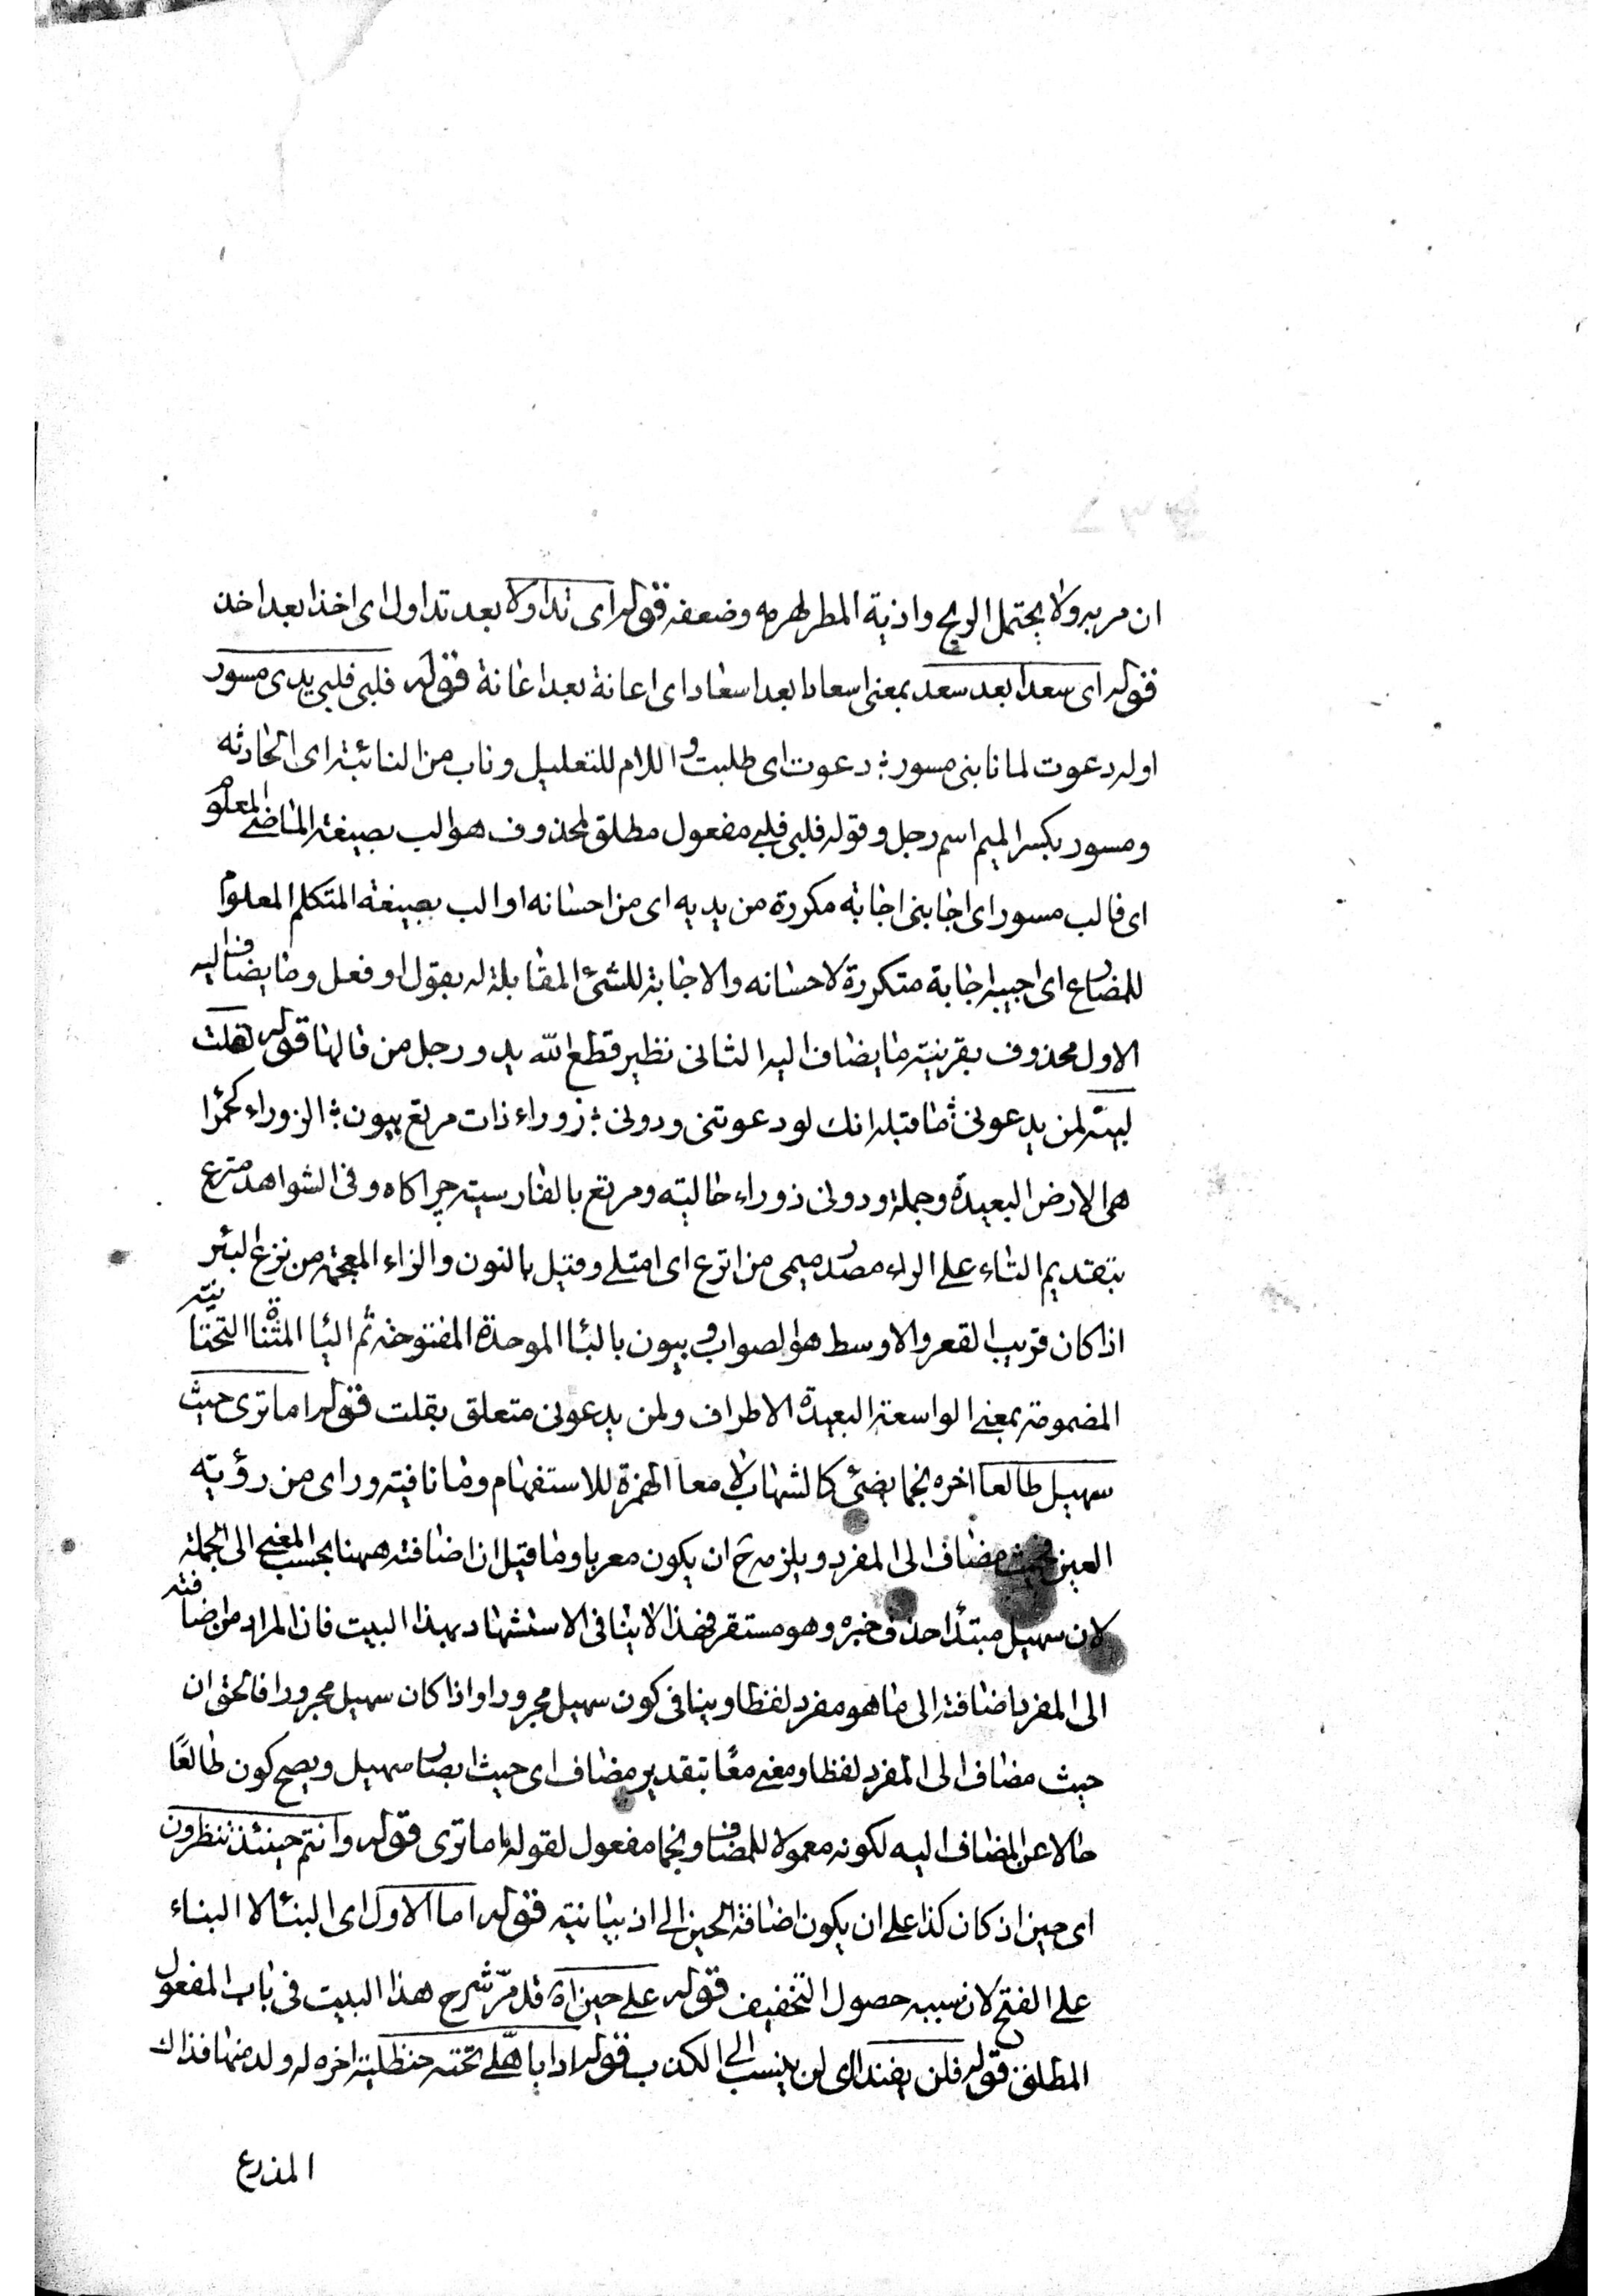 ان مر به ولا يحتمل الريح واذية المطر لهرمه وضعفه قوله اى تداولا بعد تداول اى اخذا بعد اخذ
قوله اى سعدا بعد سعد بمعنى اسعادا بعد اسعاد اى اعانة بعد اعانة قوله فلبى فلبى يدى مسور
اوله دعوت لما نابنى مسور ؛ دعوت اى طلبت و اللام للتعليل وناب من النائبة اى الحادثه
ومسور بكسر الميم اسم رجل وقوله فلبى فلبى مفعول مطلق لمحذوف هو الب بصيغة الماضى المعلوم
اى فالب مسور اى اجابنى اجابة مكررة من يديه اى من احسانه او الب بصيغة المتكلم المعلوم
للمضارع اى اجيبه اجابة متكررة لاحسانه والاجابة للشئ المقابلة له بقول او فعل وما يضاف اليه
الاول محذوف بقرينة ما يضاف اليه الثانى نظير قطع الله يد ورجل من قالها قوله لقلت
لبيه لمن يدعونى ؛ ما قبله انك لو دعوتنى ودونى ؛ زوراء ذات مرتع بيون ؛ الزوراء كحمرا
هى الارض البعيدة وجملة ودونى زوراء حالية ومرتع بالفارسية چراكاه وفى الشواهد مترع
بتقديم التاء على الراء مصدر ميمى من اترع اى امتلى وقيل بالنون والزاء المعجمة من نزع البئر
اذا كان قريب القعر والاوسط هو الصواب و بيون بالبا الموحدة المفتوحة ثم اليا المثناة التحتانية
المضمومة بمعنى الواسعة البعيدة الاطراف ولمن يدعونى متعلق بقلت قوله اما ترى حيث
سهيل طالعا اخره نجما يضئ كالشهاب لامعا الهمزة للاستفهام وما نافية ورأى من رؤية
العين فحيث مضاف الى المفرد ويلزمه ح ان يكون معربا وما قيل ان اضافته ههنا بحسب المعنى الى الجملة
لان سهيل مبتدأ حذف خبره وهو مستقر فهذا لا ينافى الاستشهاد بهذا البيت فان المراد من اضافته
الى المفرد اضافته الى ما هو مفرد لفظا وينافى كون سهيل مجرورا واذا كان سهيل مجرورا فالحق ان
حيث مضاف الى المفرد لفظا ومعنى معًا بتقدير مضاف اى حيث ابصار سهيل ويصح كون طالعًا
حالا عن المضاف اليه لكونه معمولا للمضاف ونجما مفعول لقوله اما ترى قوله وانتم حينئذ تنظرون
اى حين اذ كان كذا على ان يكون اضافة الحين الى اذ بيانية قوله اما الاول اى البنأ لا البناء
على الفتح لان سببه حصول التخفيف قوله على حين اه قد مرّ شرح هذا البيت فى باب المفعول
المطلق قوله فلن يفندا اى لن ينسب الى الكذب قوله اذا باهلى تحته حنظلية اخره له ولد منها فذاك
المذرع